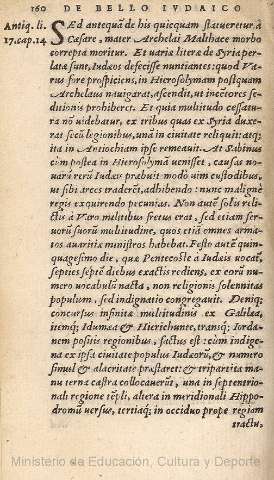 160 DE BELLO IVDAICO
Antiq. li.
17.cap.14
SED antequā de his quicquam statueretur à
Cæsare, mater Archelai Malthace morbo
correpta moritur. Et varia literæ de Syria per-
latæ sunt, Iudæos defecisse nuntiantes: quod Va-
rus fore prospiciens, in Hierosolymam postquam
Archelaus nauigarat, ascendit, ut inceptores se-
ditionis prohiberet. Et quia multitudo cessatu-
ra nō uidebatur, ex tribus quas ex Syria duxe-
rat secū legionibus, unā in ciuitate reliquit: atq;
ita in Antiochiam ipse remeauit. At Sabinus
cùm postea in Hierosolymā uenisset, causas no-
uarū rerū Iudæis præbuit: modò uim custodibus,
ut sibi arces traderēt, adhibendo: nunc malignè
regis exquirendo pecunias. Non autē solùm reli-
ctis à Varo militibus fretus erat, sed etiam ser-
uorū suorū multitudine, quos etiā omnes arma-
tos auaritiæ ministros habebat. Festo autē quin-
quagesimo die, quæ Pentecoste à Iudæis uocat̄,
septies septē diebus exactis rediens, ex eorū nu-
mero uocabulū nacta, non religionis solennitas
populum, sed indignatio congregauit. Deniq;
concursus infinitæ multitudinis ex Galilæa,
itemq; Idumæa & Hierichunte, transq; Iorda-
nem positis regionibus, factus est: cùm indige-
na ex ipsa ciuitate populus Iudæorū, & numero
simul & alacritate præstaret: & tripartita ma-
nu terna castra collocauerūt, una in septentrio-
nali regione tēpli, altera in meridionali Hippo-
dromū uersus, tertiaq; in occiduo prope regiam
tractu,
Ministerio de Educación, Cultura y Deporte